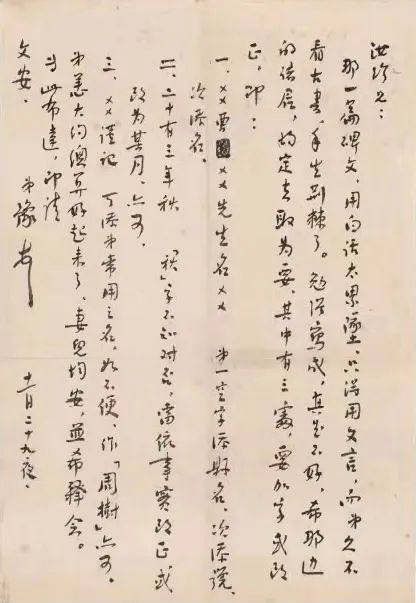 汝珍兄：
那一篇碑文，用白话太累坠，只得用文言，而弟久不
看古书，手生荆棘了。勉强写成，真是不好，希那边
的诸居，酌定去取为要。其中有三处，要加字或改
正，即：
一、××曹××先生名××　第一空字添县名，次添號，
次添名。
二、二十有三年秋　「秋」字不知对否，当依事实改正或
改为某月，亦可。
三、××谨记　可添弟常用之名，如不便，作「周树」亦可。
弟恙大约总算好起来了，妻儿均安，并希释念。
专此布达，即请
文安。
弟豫上　十一月二十九夜。